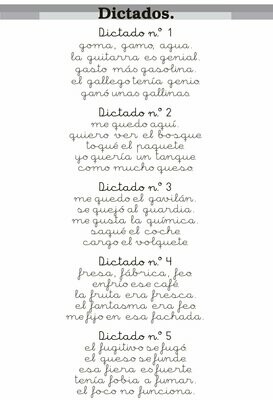 Dictados.
Dictado n.º 1
goma, gamo, agua.
la guitarra es genial.
gasto más gasolina.
el gallego tenía genio
ganó unas gallinas
Dictado n.º 2
me quedo aquí.
quiero ver el bosque
toqué el paquete
yo quería un tanque
como mucho queso
Dictado n.º 3
me quedo el gavilán.
se quejó al guardia.
me gusta la química.
saqué el coche
cargo el volquete
Dictado n.º 4
fresa, fábrica, feo
enfrío ese café
la fruta era fresca.
el fantasma era feo
me fijo en esa fachada.
Dictado n.º 5
el fugitivo se fugó
el queso se funde
esa fiera es fuerte
tenía fobia a fumar.
el foco no funciona.